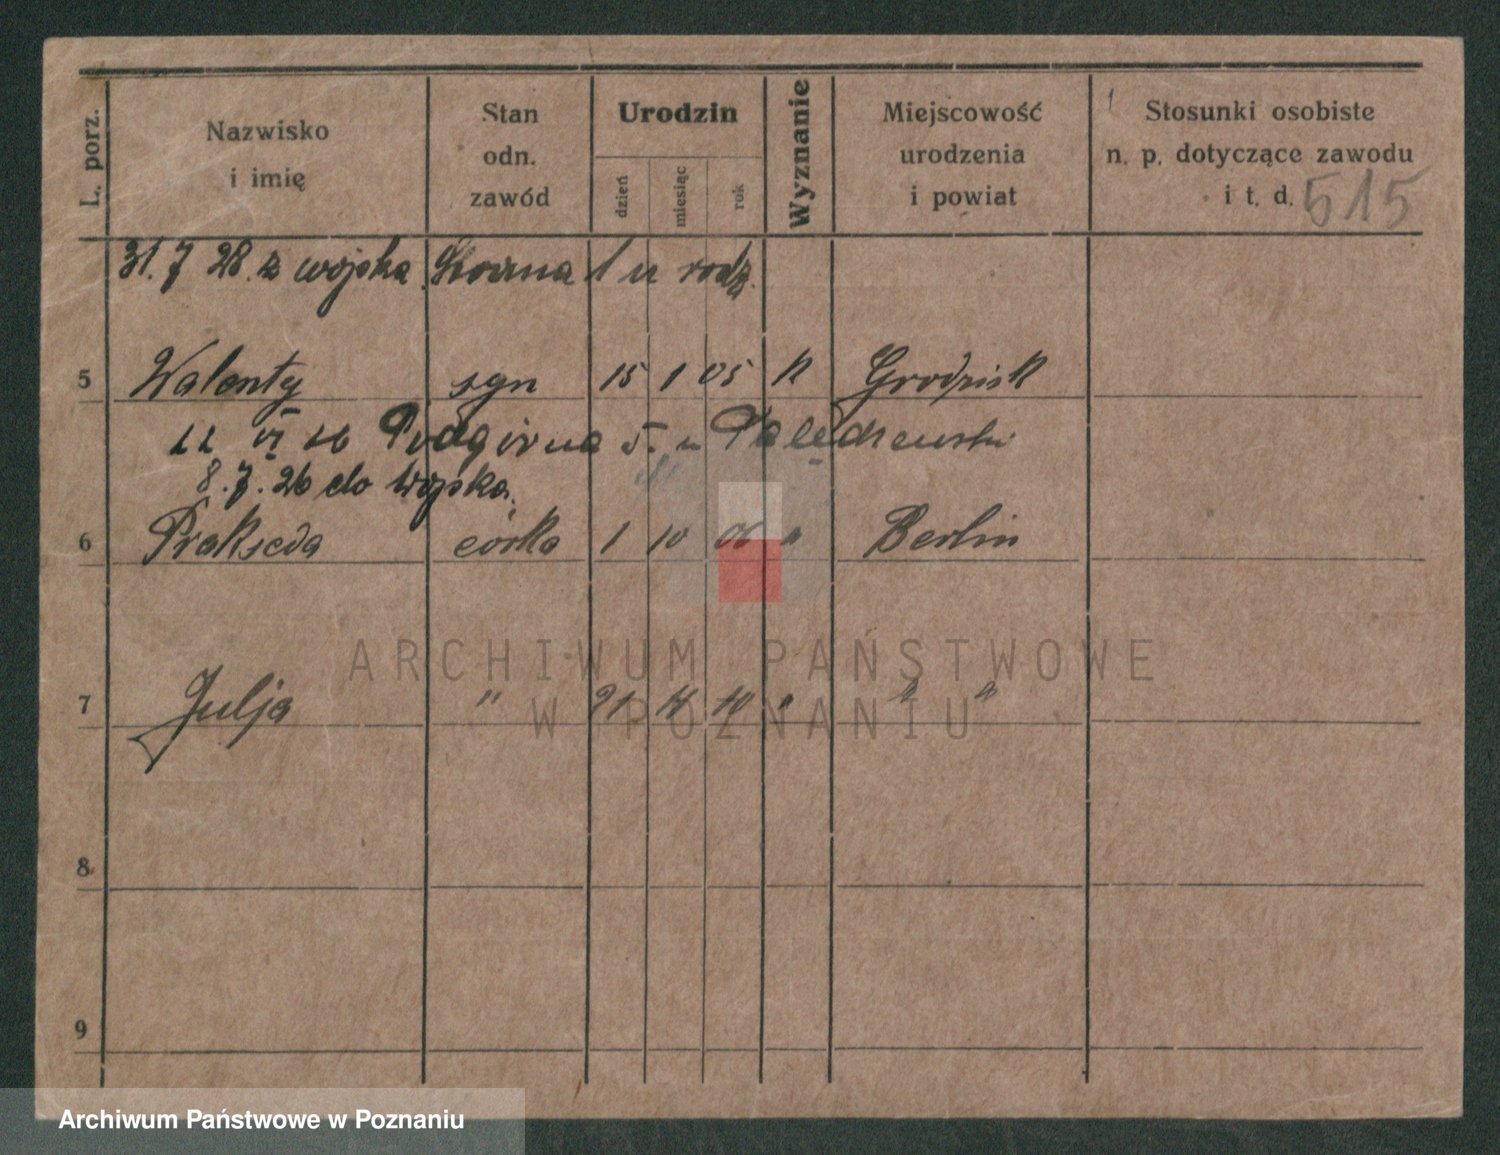 L. porz.
Nazwisko i imię
Stan odn. zawód
Urodzin
dzień
miesiąc
rok
Wyznanie
Miejscowość urodzenia i powiat
Stosunki osobiste n. p. dotyczące zawodu i t. d.
515
31. 7 28. z wojska 1 u rodz.
5 Walenty syn 15 1 05 k Grodzisk
VI 26 Podgórna 5. u
8. 7. 26 do wojska.
6 Prakseda córka 1 10 06 " Berlin
ARCHIWUM PAŃSTWOWE
7 Julja " 21 10 " " "
W POZNANIU
8
9
Archiwum Państwowe w Poznaniu